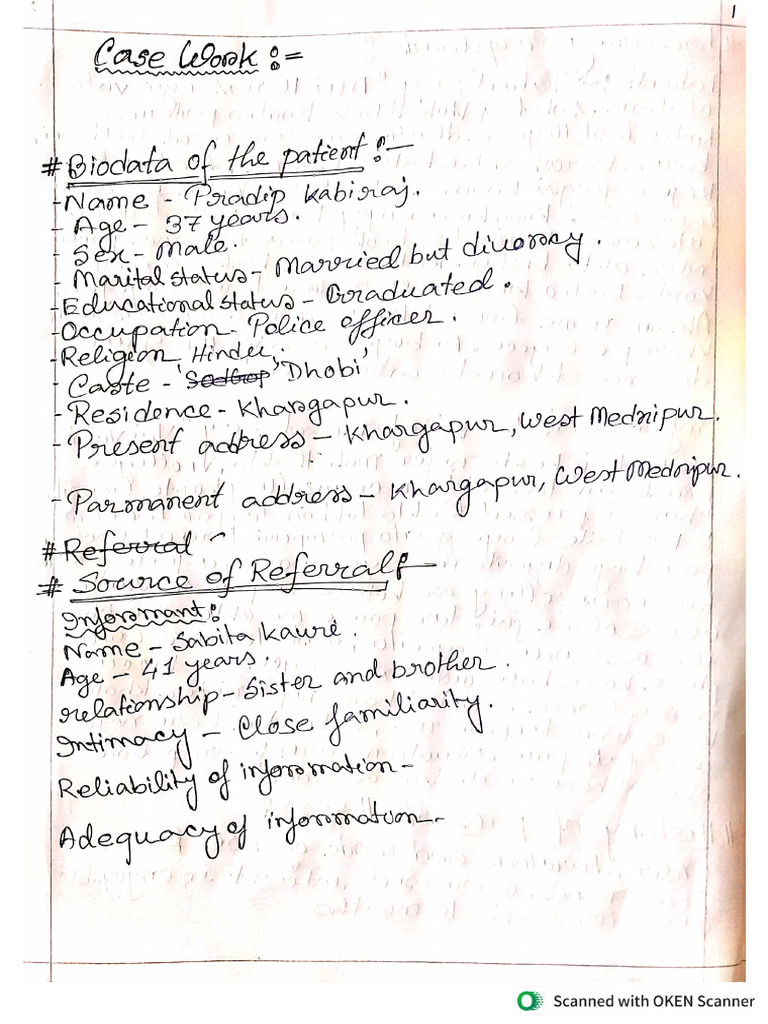 1
Case Work :=
# Biodata of the patient :-
- Name - Pradip Kabiraj.
- Age - 37 years.
- Sex - Male.
- Marital status - Married but divorcy.
- Educational status - Graduated.
- Occupation - Police officer.
- Religion 'Hindu'.
- Caste - 'Sadgop' 'Dhobi'
- Residence - Khargapur.
- Present address - Khargapur, West Mednipur.
- Parmanent address - Khargapur, West Mednipur.
# Referral -
# Source of Referral :-
Informant :
Name - Sabita Kauri.
Age - 41 years.
relationship - Sister and brother.
Intimacy - Close familiarity.
Reliability of information -
Adequacy of information -
Scanned with OKEN Scanner